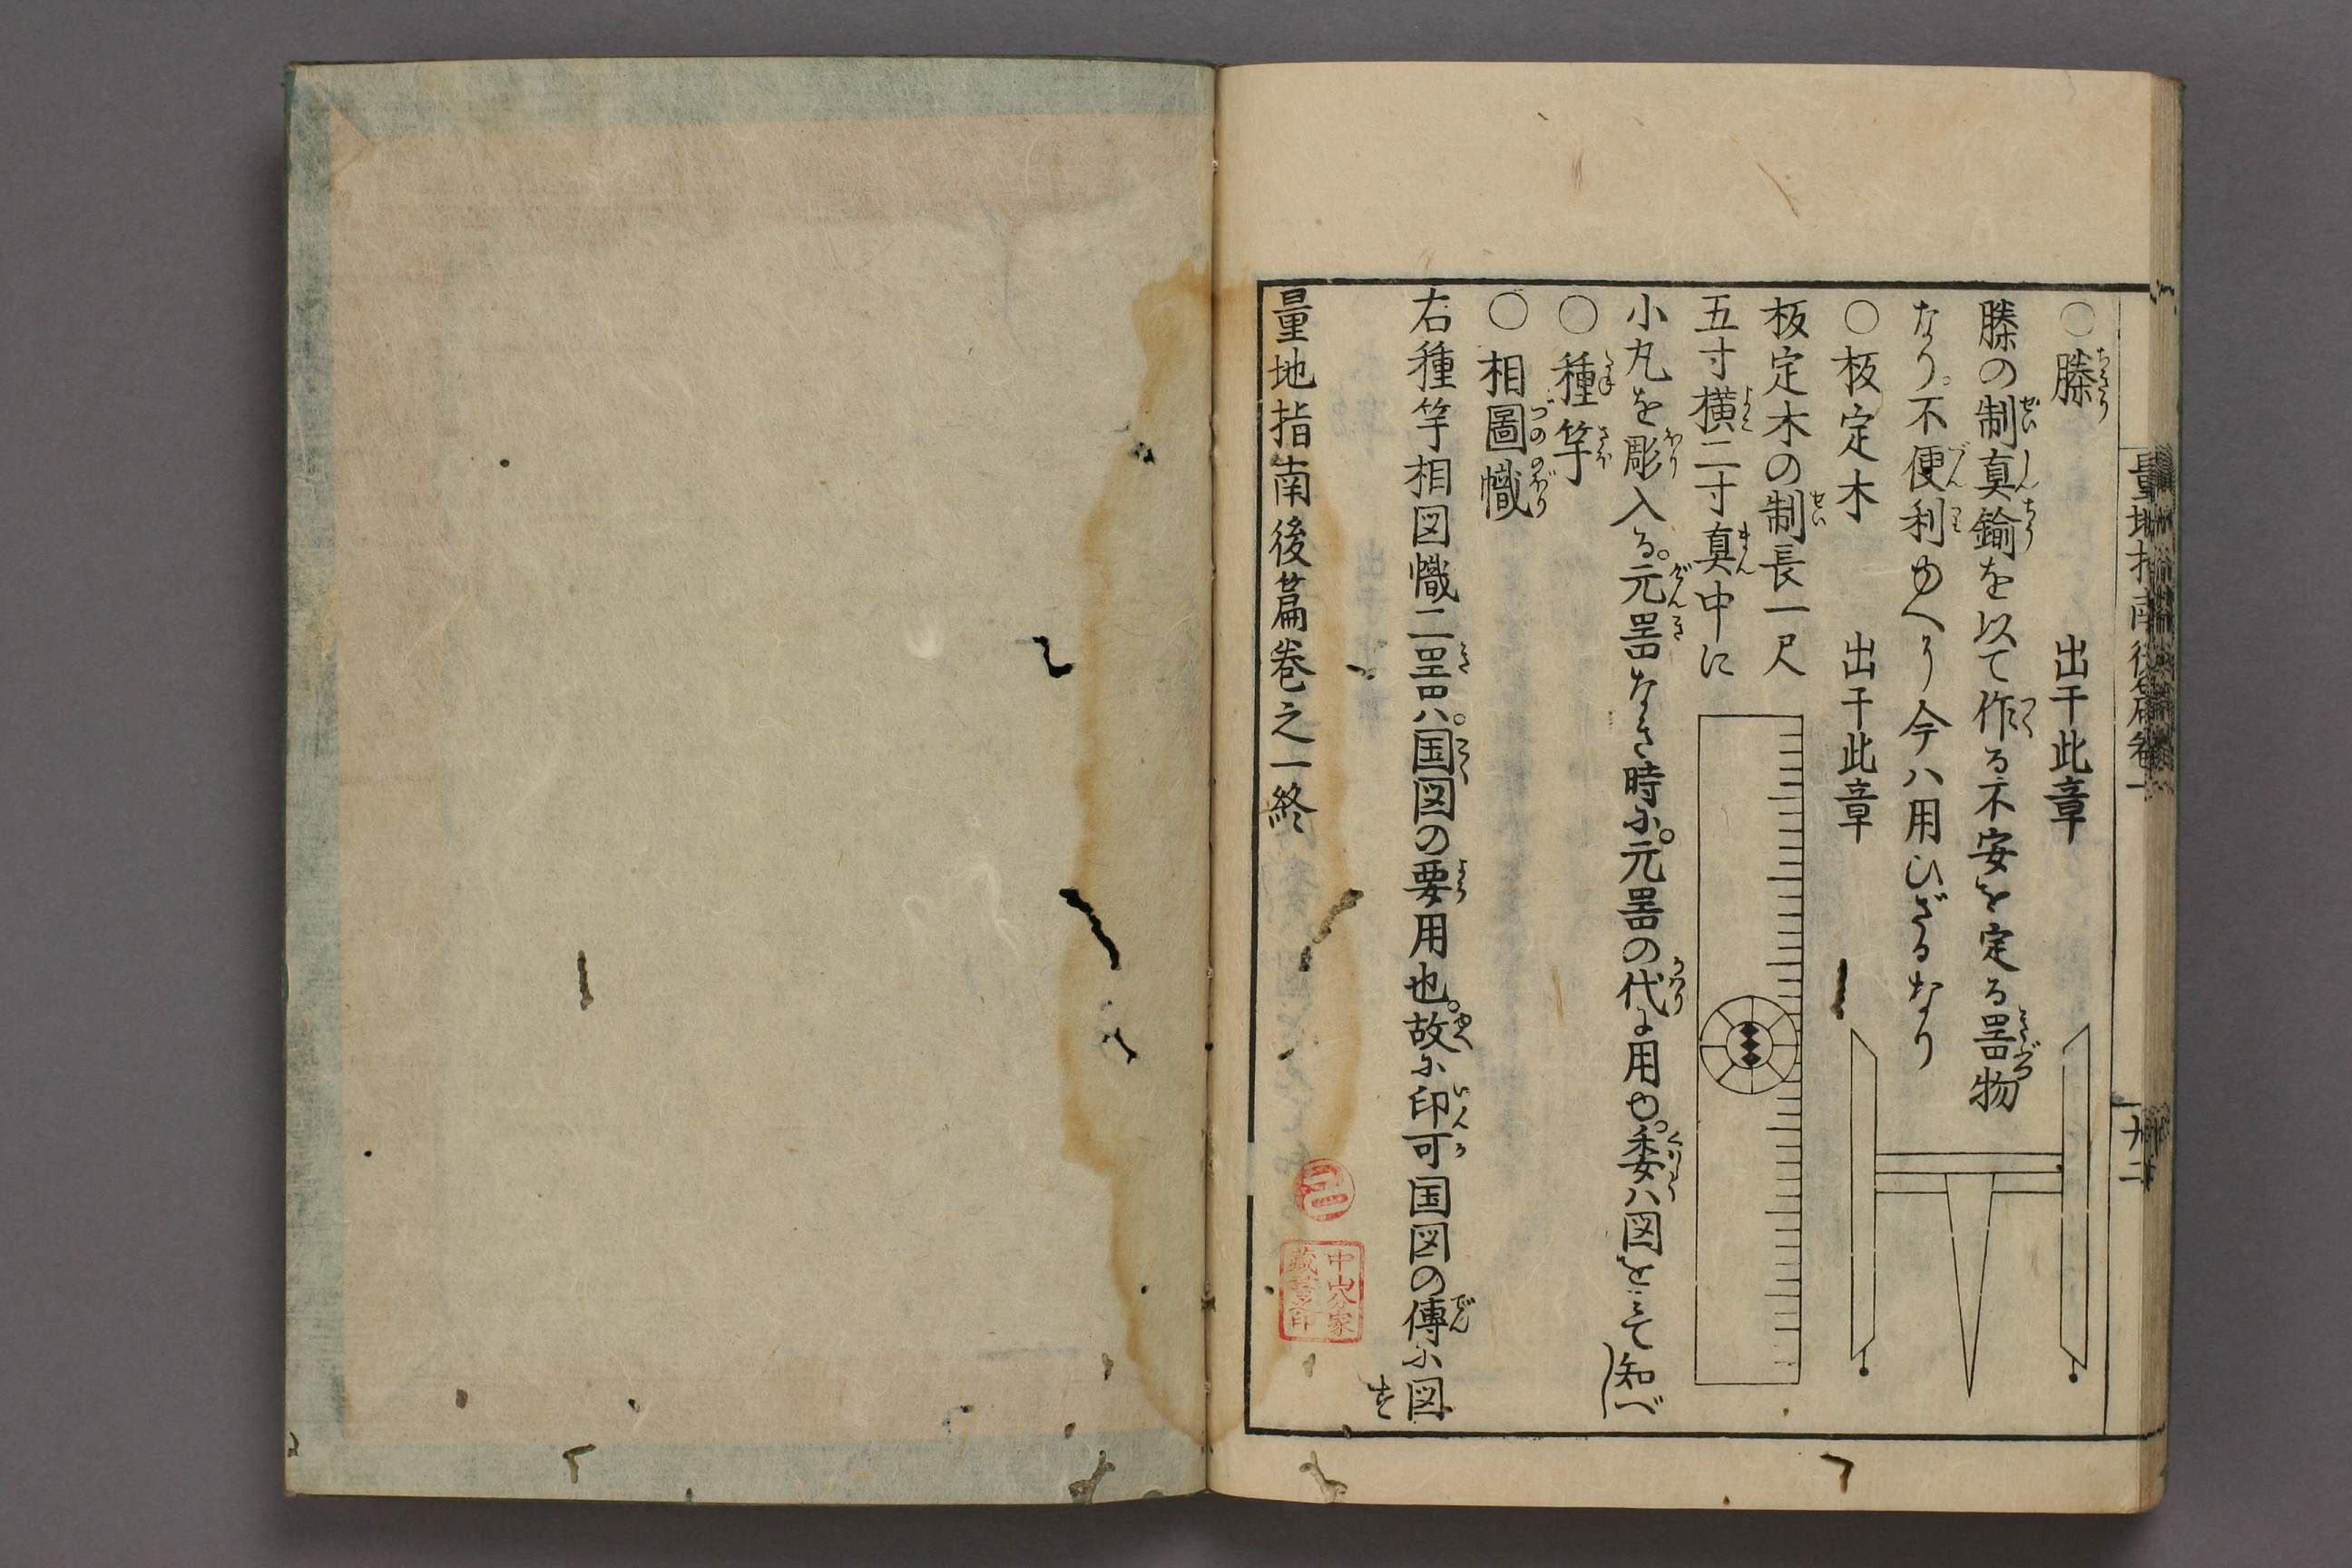 ○ 榺 出于此章
榺の制真鍮を以て作る不安を定る器物
なり。不便利ゆへり今ハ用ひざるなり
○ 板定木 出于此章
板定木の制長一尺
五寸横二寸真中に
小丸を彫入る。元器なき時に。元器の代に用ゆ。委ハ図をみて知べし
○ 種竿
○ 相圖幟
右種竿相図幟二器ハ。国図の要用也。故に印可国図の傳に図す
量地指南後篇巻之一終
中山氏家
蔵書之印
量地指南後篇巻一
廿二